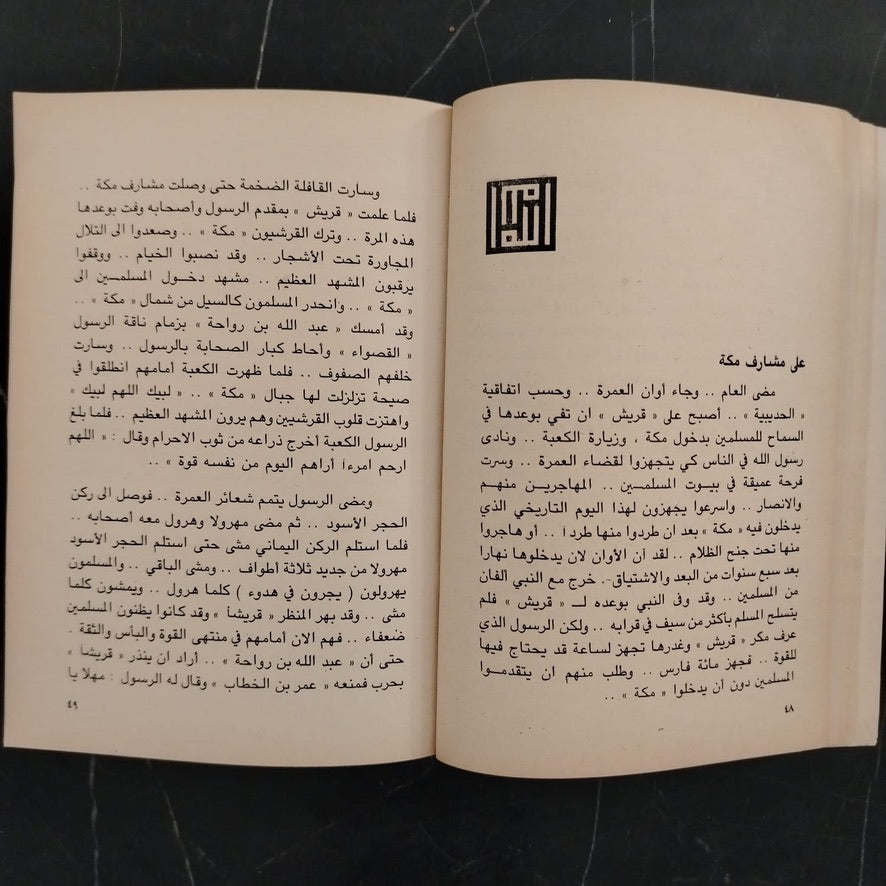 الله
على مشارف مكة
مضى العام .. وجاء أوان العمرة .. وحسب اتفاقية
« الحديبية » .. أصبح على « قريش » ان تفي بوعدها في
السماح للمسلمين بدخول مكة ، وزيارة الكعبة .. ونادى
رسول الله في الناس كي يتجهزوا لقضاء العمرة .. وسرت
فرحة عميقة في بيوت المسلمين .. المهاجرين منهم
والانصار .. واسرعوا يجهزون لهذا اليوم التاريخي الذي
يدخلون فيه « مكة » بعد ان طردوا منها طرداً .. أو هاجروا
منها تحت جنح الظلام .. لقد ان الأوان لان يدخلوها نهارا
بعد سبع سنوات من البعد والاشتياق .. خرج مع النبي ألفان
من المسلمين .. وقد وفى النبي بوعده لـ « قريش » فلم
يتسلح المسلم بأكثر من سيف في قرابه .. ولكن الرسول الذي
عرف مكر « قريش » وغدرها تجهز لساعة قد يحتاج فيها
للقوة .. فجهز مائة فارس .. وطلب منهم ان يتقدموا
المسلمين دون أن يدخلوا « مكة » ..
٤٨
وسارت القافلة الضخمة حتى وصلت مشارف مكة ..
فلما علمت « قريش » بمقدم الرسول وأصحابه وفت بوعدها
هذه المرة .. وترك القرشيون « مكة » .. وصعدوا الى التلال
المجاورة تحت الأشجار .. وقد نصبوا الخيام .. ووقفوا
يرقبون المشهد العظيم .. مشهد دخول المسلمين الى
« مكة » .. وانحدر المسلمون كالسيل من شمال « مكة » ..
وقد أمسك « عبد الله بن رواحة » بزمام ناقة الرسول
« القصواء » وأحاط كبار الصحابة بالرسول .. وسارت
خلفهم الصفوف .. فلما ظهرت الكعبة أمامهم انطلقوا في
صيحة تزلزلت لها جبال « مكة » .. « لبيك اللهم لبيك »
واهتزت قلوب القرشيين وهم يرون المشهد العظيم .. فلما بلغ
الرسول الكعبة أخرج ذراعه من ثوب الاحرام وقال : « اللهم
ارحم امرءاً أراهم اليوم من نفسه قوة » ..
ومضى الرسول يتمم شعائر العمرة .. فوصل الى ركن
الحجر الأسود .. ثم مضى مهرولا وهرول معه أصحابه ..
فلما استلم الركن اليماني مشى حتى استلم الحجر الأسود
مهرولا من جديد ثلاثة أطواف .. ومشى الباقي .. والمسلمون
يهرولون ( يجرون في هدوء ) كلما هرول .. ويمشون كلما
مشى .. وقد بهر المنظر « قريشاً » وقد كانوا يظنون المسلمين
ضعفاء .. فهم الان أمامهم في منتهى القوة والبأس والثقة .
حتى أن « عبد الله بن رواحة » .. أراد ان ينذر « قريشاً »
بحرب فمنعه « عمر بن الخطاب » وقال له الرسول : مهلا يا
٤٩